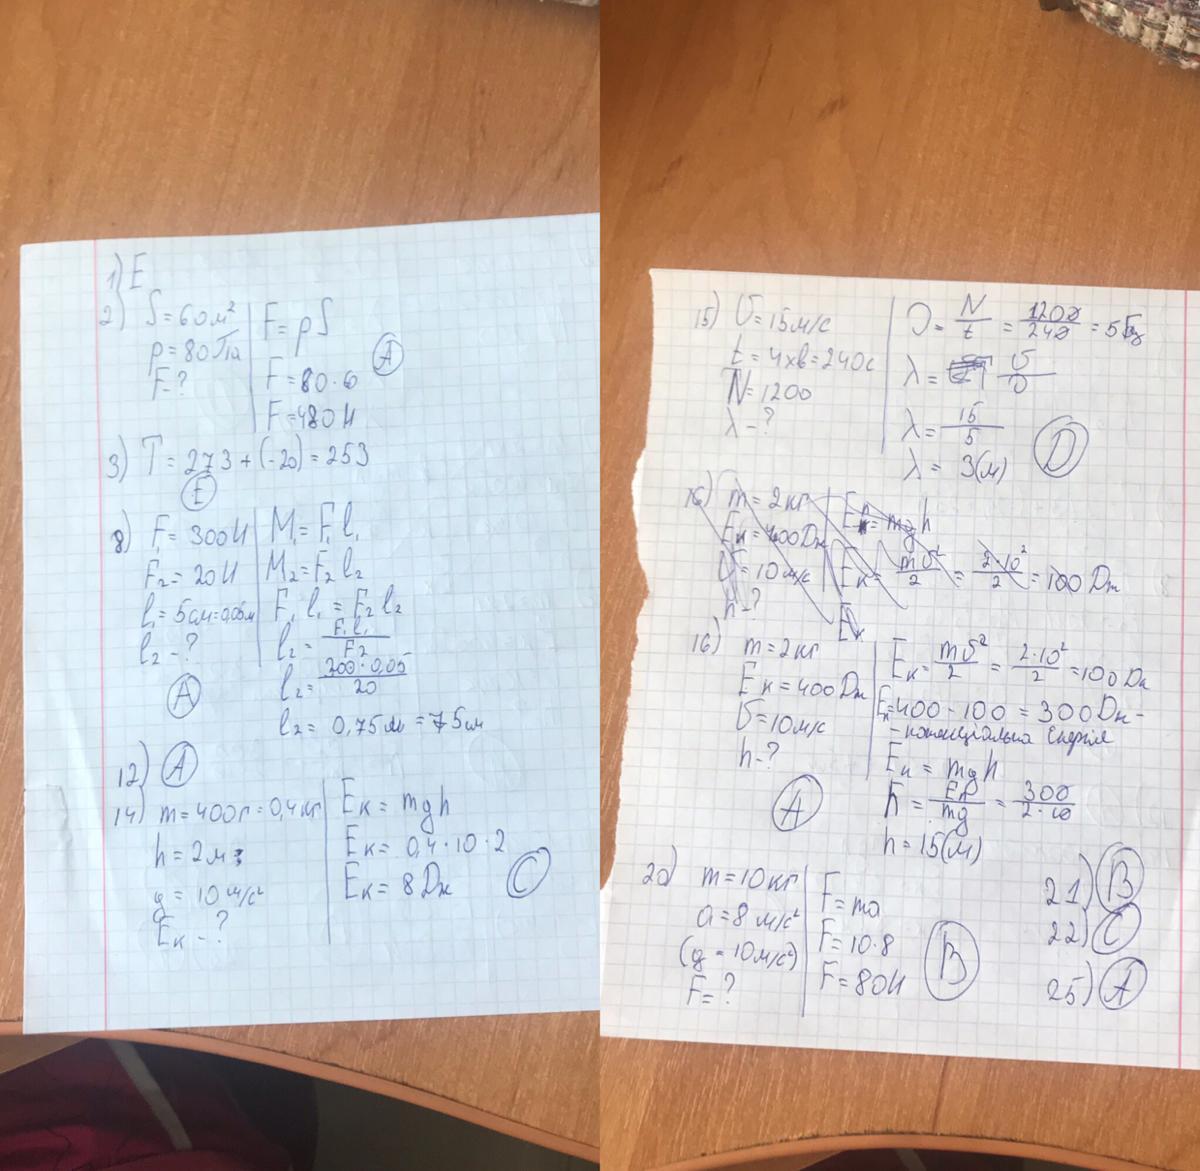 1) E
2) S = 60 м²
p = 80 Па
F = ?
F = pS
F = 80·6
F = 480 Н
A
3) T = 273 + (-20) = 253
E
8) F₁ = 300 Н
F₂ = 20 Н
l₁ = 5 см = 0,05 м
l₂ - ?
A
M₁ = F₁l₁
M₂ = F₂l₂
F₁l₁ = F₂l₂
l₂ = F₁l₁ / F₂
l₂ = 300·0,05 / 20
l₂ = 0,75 м = 75 см
12) A
14) m = 400 г = 0,4 кг
h = 2 м
g = 10 м/с²
Eк - ?
Eк = mgh
Eк = 0,4·10·2
Eк = 8 Дж
C
15) υ = 15 м/с
t = 4 хв = 240 с
N = 1200
λ - ?
υ = N / t = 1200 / 240 = 5 Гц
λ = υ / υ
λ = 15 / 5
λ = 3 (м)
D
16) m = 2 кг
Eк = 400 Дж
υ = 10 м/с
h - ?
Eк = mgh
Eк = mυ² / 2 = 2·10² / 2 = 100 Дж
Eк
16) m = 2 кг
Eк = 400 Дж
υ = 10 м/с
h - ?
A
Eк = mυ² / 2 = 2·10² / 2 = 100 Дж
Eп = 400 - 100 = 300 Дж -
- потенціальна енергія
Eп = mgh
h = Eп / mg = 300 / 2·10
h = 15 (м)
20) m = 10 кг
a = 8 м/с²
(g = 10 м/с²)
F = ?
F = ma
F = 10·8
F = 80 Н
B
21) B
22) C
25) A